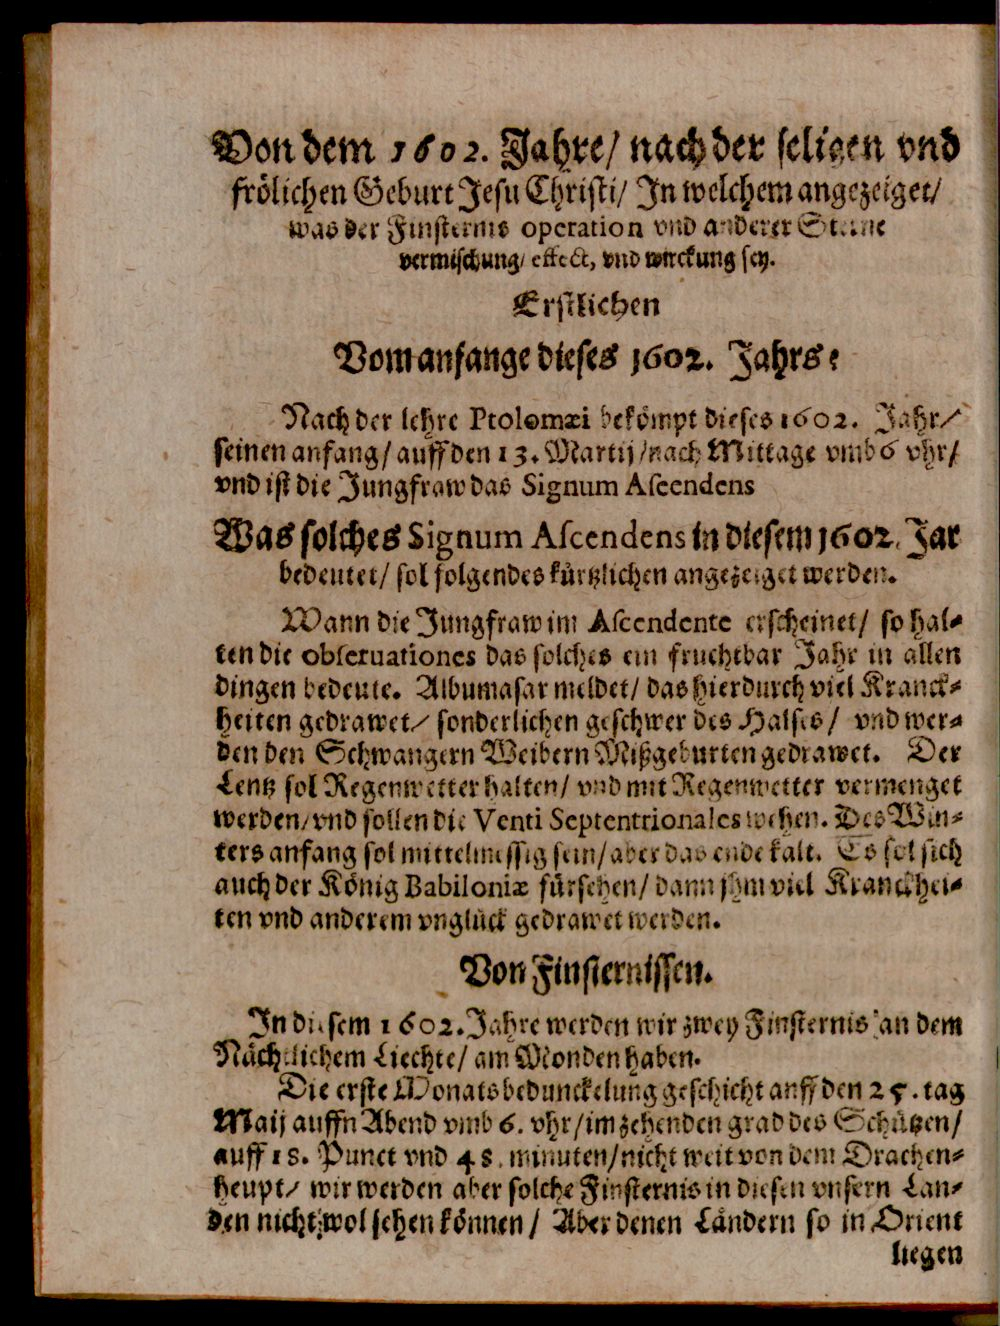 Von dem 1602. Jahre/ nach der seligen vnd
frölichen Geburt Jesu Christi/ In welchem angezeiget/
was der Finsternis operation vnd anderer Sterne
vermischung/ effect, vnd wirckung sey.
Erstlichen
Vom anfange dieses 1602. Jahrs:
Nach der lehre Ptolomæi bekömpt dieses 1602. Jahr/
seinen anfang/ auff den 13. Martij/ nach Mittage vmb 6 vhr/
vnd ist die Jungfraw das Signum Ascendens
Was solches Signum Ascendens in diesem 1602. Jar
bedeutet/ sol folgendes kürtzlichen angezeiget werden.
Wann die Jungfraw im Ascendente erscheinet/ so hal-
ten die obseruationes das solches ein fruchtbar Jahr in allen
dingen bedeute. Albumasar meldet/ das hierdurch viel Kranck-
heiten gedrawet/ sonderlichen geschwer des Halses/ vnd wer-
den den Schwangern Weibern Mißgeburten gedrawet. Der
Lentz sol Regenwetter halten/ vnd mit Regenwetter vermenget
werden/ vnd sollen die Venti Septentrionales wehen. Des Win-
ters anfang sol mittelmessig sein/ aber das ende kalt. Es sol sich
auch der König Babiloniæ fürsehen/ dann jhm viel Kranckhei-
ten vnd anderem vnglück gedrawet werden.
Von Finsternissen.
In diesem 1602. Jahre werden wir zwey Finsternis an dem
Nächtlichem Liechte/ am Monden haben.
Die erste Monatsbedunckelung geschicht auff den 25. tag
Maij auffn Abend vmb 6. vhr/ im zehenden grad des Schützen/
auff 18. Punct vnd 48. minuten/ nicht weit von dem Drachen-
heupt/ wir werden aber solche Finsternis in diesen vnsern Lan-
den nicht wol sehen können/ Aber denen Ländern so in Orient
liegen